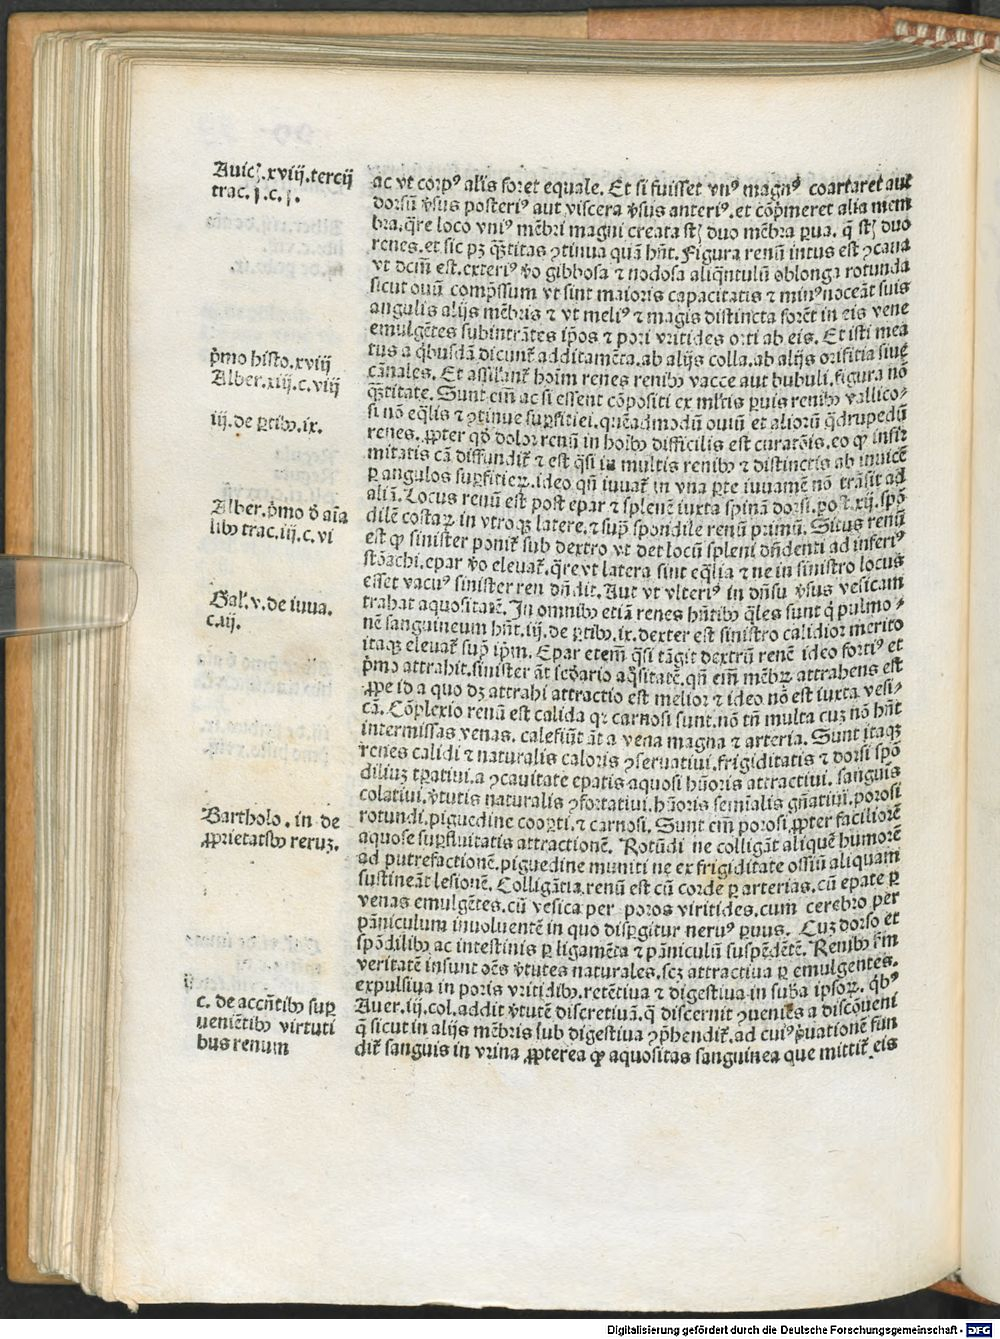 Auic̄. xviij. tercij
trac. j. c. j.
p̄mo histo. xviij
Alber. xiij. c. viij
iij. de ꝑtib⁹. ix.
Alber. p̄mo ď aīa
lib⁹ trac. iij. c. vi
Gal'. v. de iuua.
c. iij.
Bartholo. in de
ꝓprietatib⁹ reruꝫ.
c. de accn̄tib⁹ suꝑ
ueniētib⁹ virtuti
bus renum
ac vt corp⁹ alis foret equale. Et si fuisset vn⁹ magn⁹ coartaret aut
dorsū v̓sus posteri⁹ aut viscera v̓sus anteri⁹. et cōp̄meret alia mem
bra. q̄re loco vni⁹ mēbri magni creata st̄ duo mēbra ꝑua. q̄ st̄ duo
renes. et sic pꝫ q̄titas ꝯtinua quā hn̄t. Figura renū intus est ꝯcaua
vt dcm̄ est. exteri⁹ v̓o gibbosa ⁊ nodosa aliq̄ntulū oblonga rotunda
sicut ouū comp̄ssum vt sint maioris capacitatis ⁊ min⁹ noceāt suis
angulis alijs mēbris ⁊ vt meli⁹ ⁊ magis distincta forēt in eis vene
emulgētes subintrātes ip̄os ⁊ pori vritides orti ab eis. Et isti mea
tus a q̄busdā dicunt᷑ additamēta. ab alijs colla. ab alijs orifitia siue
cānales. Et assilant᷑ hoīm renes renib⁹ vacce aut bubuli. figura nō
q̄titate. Sunt em̄ ac si essent cōpositi ex ml'tis ꝑuis renib⁹ vallico⸗
si nō eq̄lis ⁊ ꝯtinue suꝑfitiei. quēadmodū ouiū et aliorū q̄drupedū
renes. ꝓpter qd̓ dolor renū in hoīb⁹ difficilis est curatōis. eo ꝙ infir
mitatis cā diffundit᷑ ⁊ est q̄si in multis renib⁹ ⁊ distinctis ab inuicē
ꝑ angulos suꝑfitieꝝ. ideo qn̄ iuuat᷑ in vna ꝑte iuuamē nō trāsit ad
aliā. Locus renū est post epar ⁊ splenē iuxta spinā dorsi. post. xij. spō
dilē costaꝝ in vtroqꝫ latere. ⁊ sup̄ spondile renū primū. Situs renū
est ꝙ sinister ponit᷑ sub dextro vt det locū spleni dn̄denti ad inferi⁹
stōachi. epar v̓o eleuat᷑. q̄re vt latera sint eq̄lia ⁊ ne in sinistro locus
esset vacu⁹ sinister ren dn̄dit. Aut vt vlteri⁹ in dn̄su v̓sus vesicam
trahat aquositatē. In omnib⁹ etiā renes hn̄tib⁹ q̄les sunt q̄ pulmo⸗
nē sanguineum hn̄t. iij. de ꝑtib⁹. ix. dexter est sinistro calidior merito
itaqꝫ eleuat᷑ sup̄ ip̄m. Epar etem̄ q̄si tāgit dextrū renē ideo forti⁹ et
p̄mo attrahit. sinister āt scd̄ario aq̄sitatē. qn̄ em̄ mēbꝝ attrahens est
ꝓpe id a quo dꝫ attrahi attractio est melior ⁊ ideo nō est iuxta vesi⸗
cā. Cōplexio renū est calida qꝛ carnosi sunt. nō tn̄ multa cuꝫ nō hn̄t
intermissas venas. calefiūt āt a vena magna ⁊ arteria. Sunt itaqꝫ
renes calidi ⁊ naturalis caloris ꝯseruatiui. frigiditatis ⁊ dorsi spō
diliuꝫ tꝑatiui. a ꝯcauitate epatis aquosi hūoris attractiui. sanguīs
colatiui. v̓tutis naturalis ꝯfortatiui. hūoris semīalis gn̄atiui. porosi
rotundi. piguedine cooꝑti. ⁊ carnosi. Sunt em̄ porosi. ꝓpter faciliorē
aquose suꝑfluitatis attractionē. Rotūdi ne colligāt aliquē humorē
ad putrefactionē. piguedine muniti ne ex frigiditate ossiū aliquam
sustineāt lesionē. Colligātia renū est cū corde ꝑ arterias. cū epate ꝑ
venas emulgētes. cū vesica per poros viritides. cum cerebro per
pāniculum inuoluentē in quo disꝑgitur neru⁹ ꝑuus. Cuꝫ dorso et
spōdilib⁹ ac intestinis ꝑ ligamēta ⁊ pāniculū suspēdētē. Renib⁹ km̄
veritatē insunt oēs v̓tutes naturales. scꝫ attractiua ꝑ emulgentes.
expulsiua in poris vritidib⁹. retētiua ⁊ digestiua in sub̄a ipsoꝝ. qb⁹
Auer. iij. col. addit v̓tutē discretiuā. q̄ discernit ꝯueniēs a discōueni
q̄ sicut in alijs mēbris sub digestiua ꝯp̄hendit᷑. ad cui⁹ p̄uationē fun
dit᷑ sanguis in vrina ꝓpterea ꝙ aquositas sanguinea que mittit᷑ eis
Digitalisierung gefördert durch die Deutsche Forschungsgemeinschaft - DFG